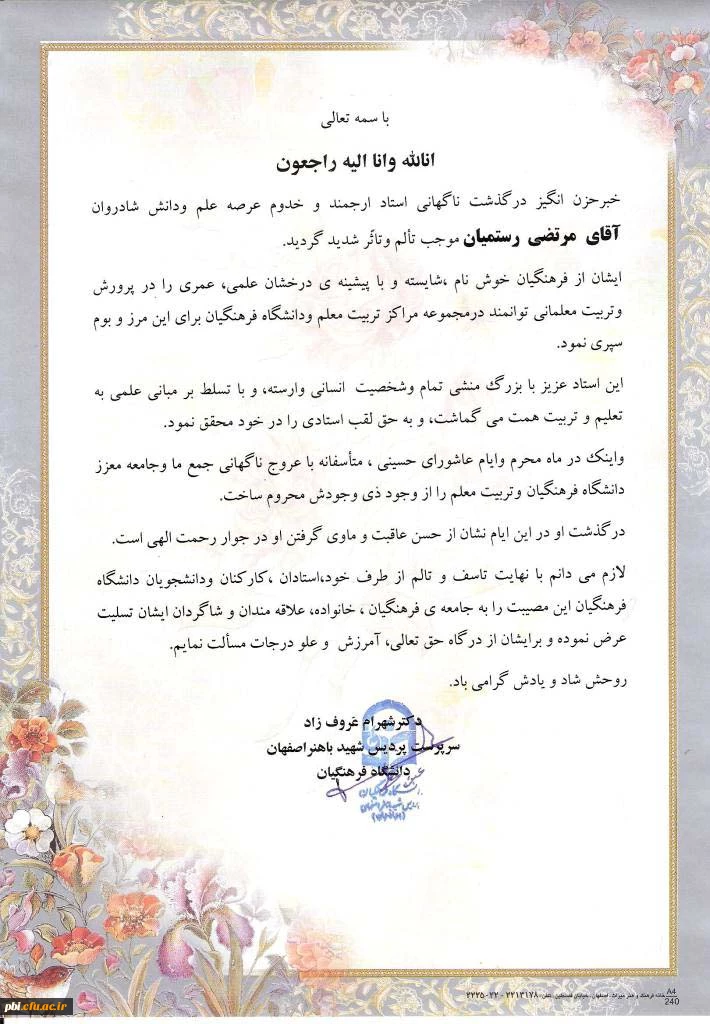 با سمه تعالی
انالله وانا الیه راجعون
خبرحزن انگیز درگذشت ناگهانی استاد ارجمند و خدوم عرصه علم ودانش شادروان
آقای مرتضی رستمیان موجب تألم وتاثّر شدید گردید.
ایشان از فرهنگیان خوش نام ،شایسته و با پیشینه ی درخشان علمی، عمری را در پرورش
وتربیت معلمانی توانمند درمجموعه مراکز تربیت معلم ودانشگاه فرهنگیان برای این مرز و بوم
سپری نمود.
این استاد عزیز با بزرگ منشی تمام وشخصیت انسانی وارسته، و با تسلط بر مبانی علمی به
تعلیم و تربیت همت می گماشت، و به حق لقب استادی را در خود محقق نمود.
واینک در ماه محرم وایام عاشورای حسینی ، متأسفانه با عروج ناگهانی جمع ما وجامعه معزز
دانشگاه فرهنگیان وتربیت معلم را از وجود ذی وجودش محروم ساخت.
درگذشت او در این ایام نشان از حسن عاقبت و ماوی گرفتن او در جوار رحمت الهی است.
لازم می دانم با نهایت تاسف و تالم از طرف خود،استادان ،کارکنان ودانشجویان دانشگاه
فرهنگیان این مصیبت را به جامعه ی فرهنگیان ، خانواده، علاقه مندان و شاگردان ایشان تسلیت
عرض نموده و برایشان از درگاه حق تعالی، آمرزش و علو درجات مسألت نمایم.
روحش شاد و یادش گرامی باد.
دکترشهرام عروف زاد
سرپرست پردیس شهید باهنراصفهان
دانشگاه فرهنگیان
خانه فرهنگ و هنر میراث، اصفهان، خیابان فلسطین، تلفن: ۲۲۱۳۱۷۸ - ۲۲۲۵۰۲۲
A4
240
pbi.cfu.ac.ir